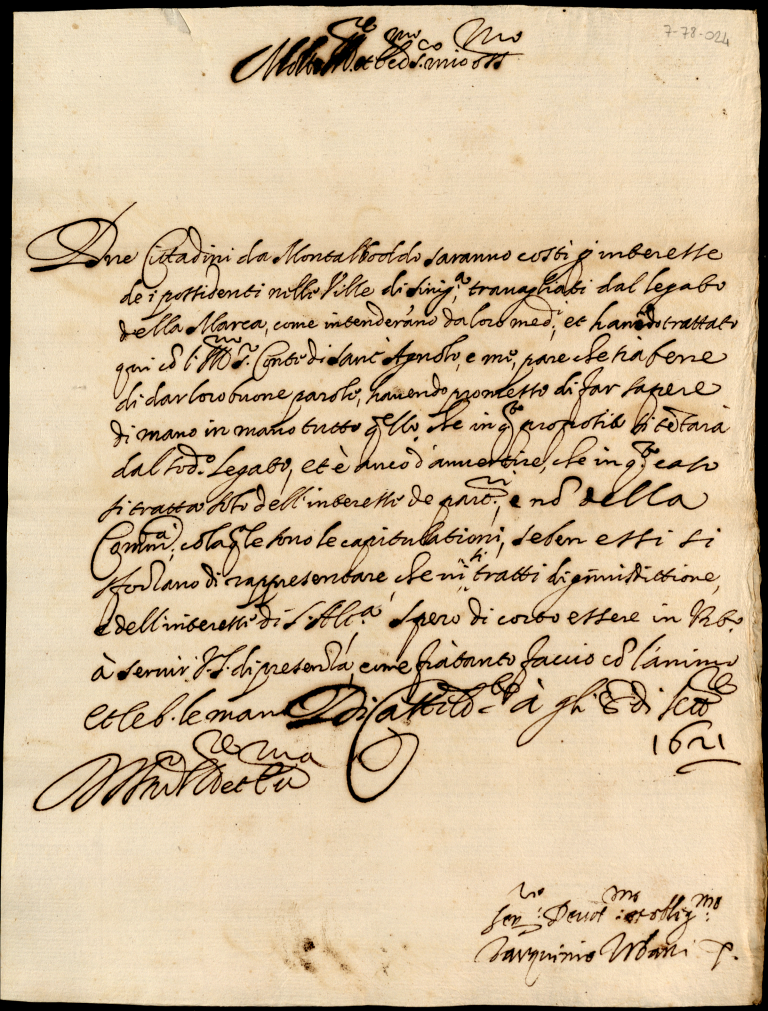 7-78-024
Molto Ill.re et Ecc.mo S.r mio oss.mo
Due Cittadini da Montalboddo saranno costì p interesse
de i possidenti nelle Ville di Sinig.a, travagliati dal legato
della Marca, come intenderanno da loro med.i, et havendo trattato
qui cõ l'Ill.mo S.r Conte di Sanc'Agnolo, e me, pare che sia bene
di dar loro buone parole, havendo promesso di far sapere
di mano in mano tutto q.ello, che in q.to proposito si tẽtarà
dal sod.o legato, et è anco d'avvertire, che in q.to caso
si tratta solo dell'interesse de part.ri, e nõ della
Comm.tà, cõ la q.le sono le capitulationi, se ben essi si
sforzano di rappresentare, che vi si tratti di giurisdittione,
e dell'interesse di S. Alt.a Spero di corto essere in Urb.o
à servir V.S. di presenza, come frà tanto faccio cõ l'animo
et le b. le mani Di Casteld.te à gli 8 di sett.re
1621
D V.S. molto Ill.re et Ecc.ma
Ser.re Devot.mo et oblig.mo
Tarquinio Urbani P.